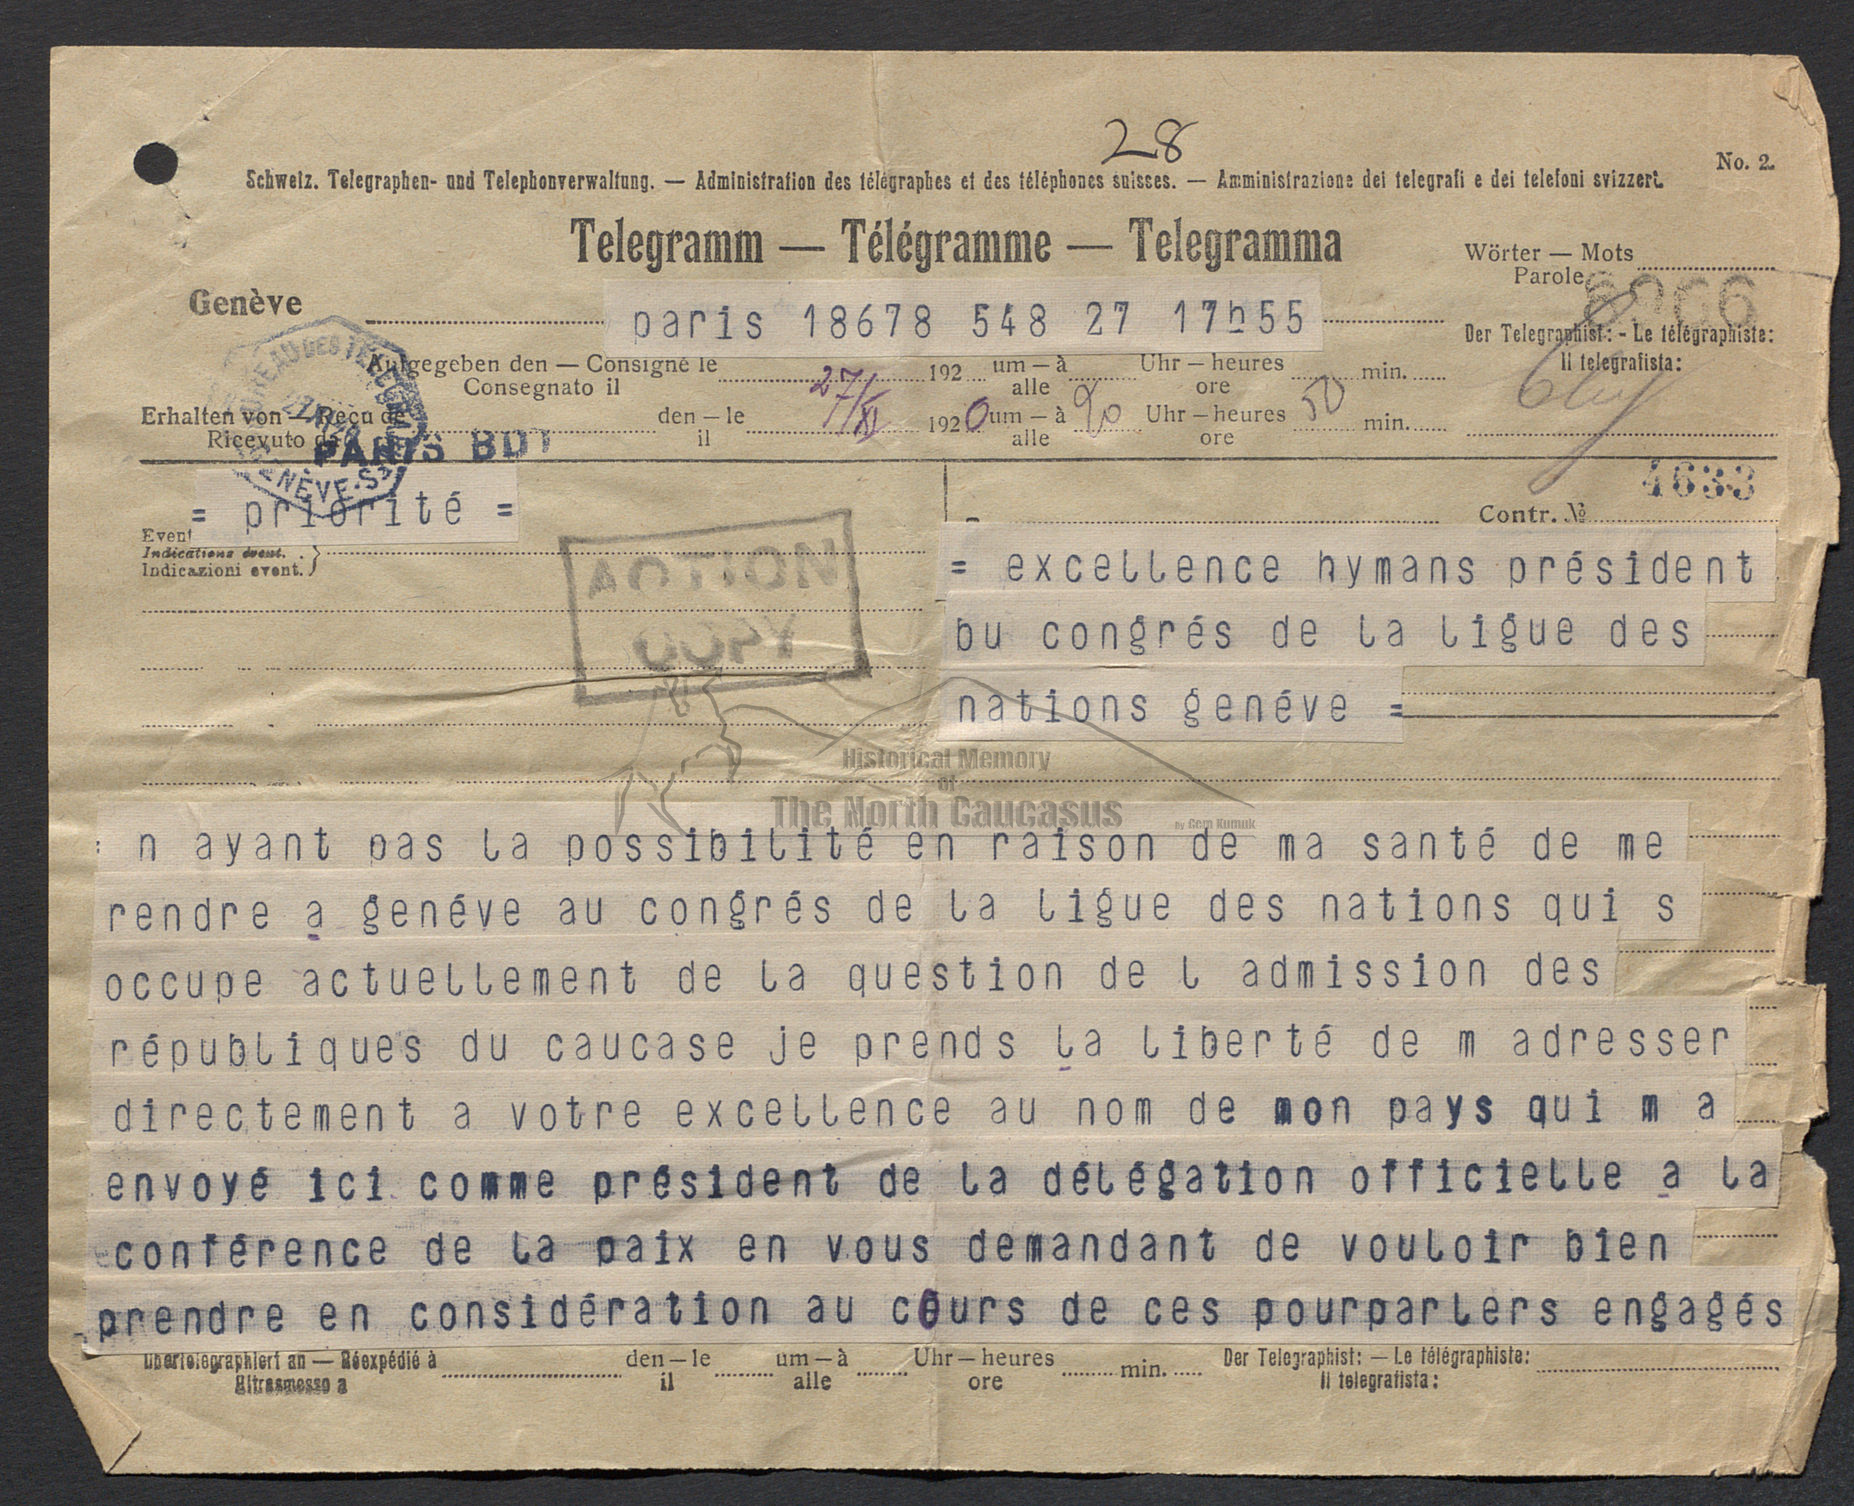 28
No. 2.
Schweiz. Telegraphen- und Telephonverwaltung. — Administration des télégraphes et des téléphones suisses. — Amministrazione dei telegrafi e dei telefoni svizzeri.
Telegramm — Télégramme — Telegramma
Wörter — Mots
Parole
Genève
paris 18678 548 27 17h55
Der Telegraphist: - Le télégraphiste:
Il telegrafista:
Aufgegeben den — Consigné le 192 um — à Uhr — heures min.
Consegnato il alle ore
Erhalten von — Reçu de den — le 27/XI 1920 um — à 20 Uhr — heures 50 min.
Ricevuto da il alle ore
PARIS BDT
GENÈVE
4633
= priorité =
Contr. №
Event
Indications évent.
Indicazioni event.
ACTION
COPY
= excellence hymans président
bu congrés de la ligue des
nations genéve =
Historical Memory
of
The North Caucasus
By Cem Kumuk
: n ayant pas la possibilité en raison de ma santé de me
rendre a genéve au congrés de la ligue des nations qui s
occupe actuellement de la question de l admission des
républiques du caucase je prends la liberté de m adresser
directement a votre excellence au nom de mon pays qui m a
envoyé ici comme président de la délégation officielle a la
conférence de la paix en vous demandant de vouloir bien
prendre en considération au cours de ces pourparlers engagés
Übertelegraphiert an — Réexpédié à den — le um — à Uhr — heures min. Der Telegraphist: — Le télégraphiste:
Ritrasmesso a il alle ore Il telegrafista: